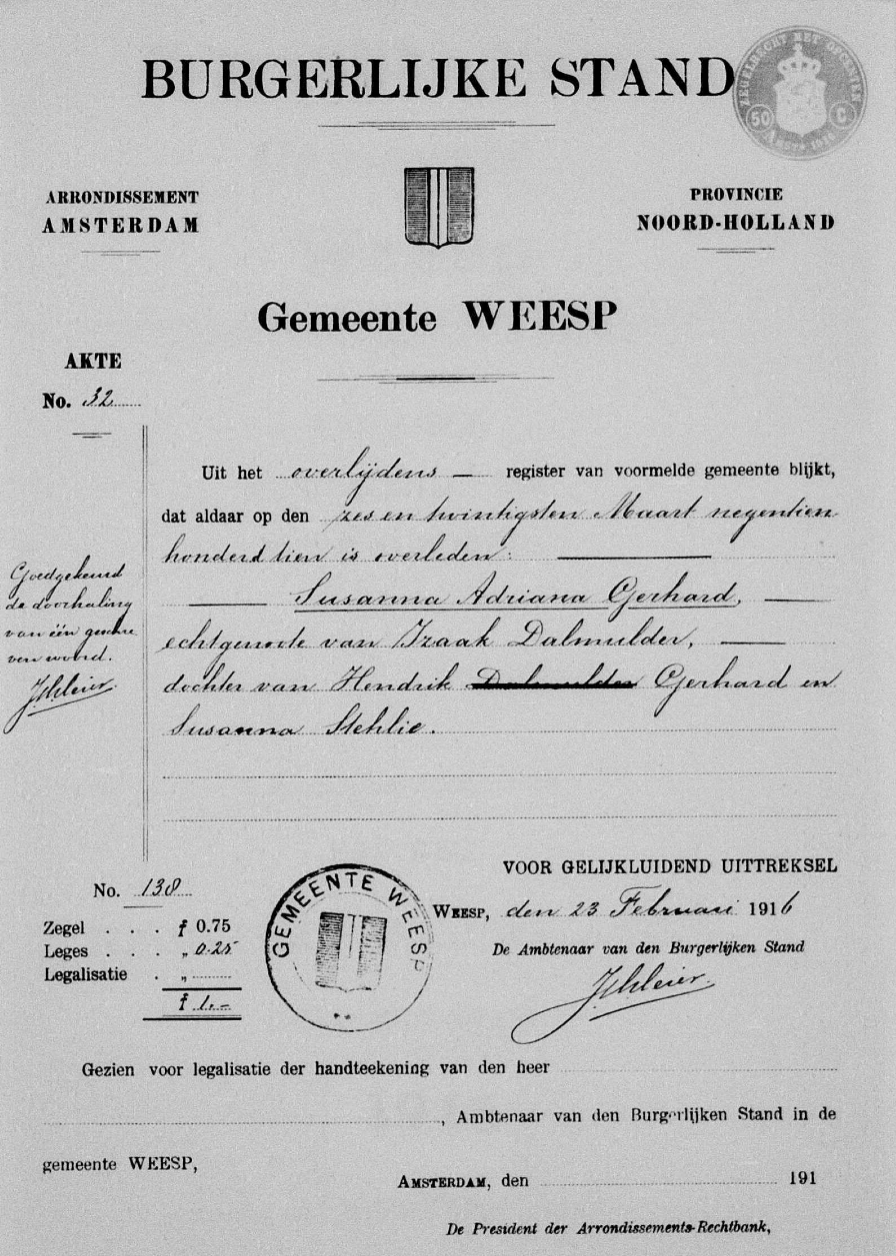 BURGERLIJKE STAND
ZEGELRECHT MET OPCENTEN
50 C
ARRONDISSEMENT
AMSTERDAM
PROVINCIE
NOORD-HOLLAND
Gemeente WEESP
AKTE
No. 32
Uit het overlijdens — register van voormelde gemeente blijkt,
dat aldaar op den zes en twintigsten Maart negentien
honderd tien is overleden:
Susanna Adriana Gerhard,
echtgenoote van Izaak Dalmulder,
dochter van Hendrik Dalmulder Gerhard en
Susanna Stehlie.
Goedgekeurd
de doorhaling
van één geschre
ven woord.
VOOR GELIJKLUIDEND UITTREKSEL
WEESP, den 23 Februari 1916
De Ambtenaar van den Burgerlijken Stand
No. 138
Zegel . . . f 0.75
Leges . . . „ 0.25
Legalisatie . „
f 1.-
GEMEENTE WEESP
Gezien voor legalisatie der handteekening van den heer
, Ambtenaar van den Burgerlijken Stand in de
gemeente WEESP,
AMSTERDAM, den 191
De President der Arrondissements-Rechtbank,